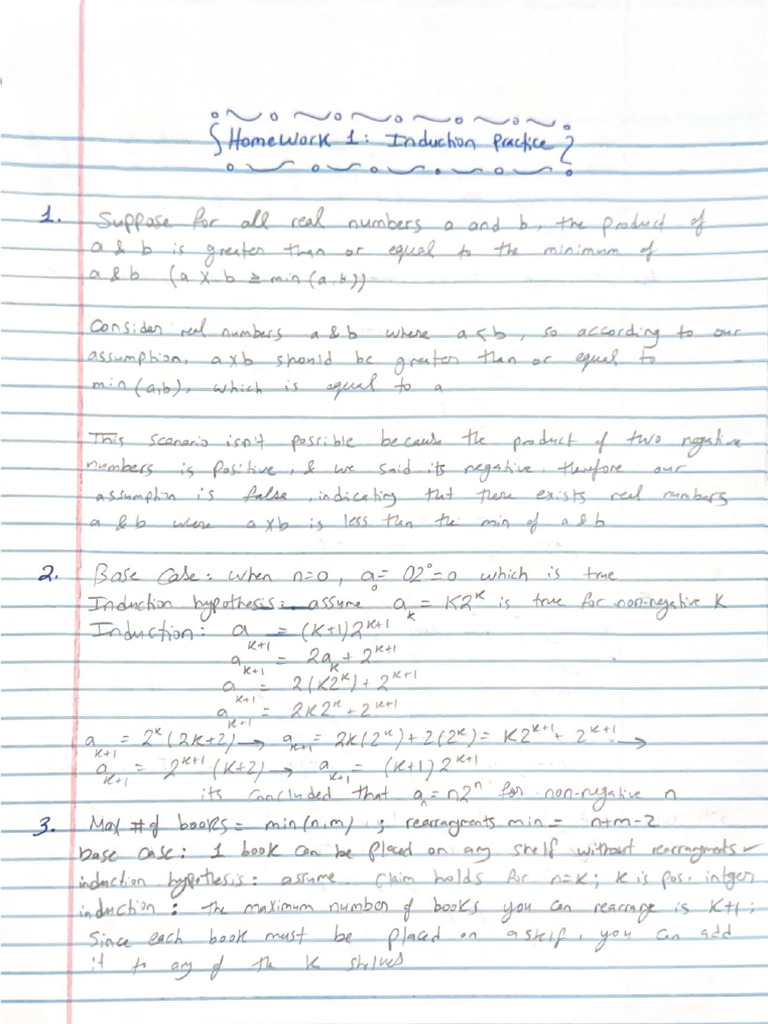 HomeWork 1: Induction Practice
1. Suppose for all real numbers a and b, the product of
a & b is greater than or equal to the minimum of
a & b (a x b ≥ min (a,b))
Consider real numbers a & b where a<b, so according to our
assumption, axb should be greater then or equal to
min(a,b), which is equal to a
This scenario isn't possible because the product of two negative
numbers is positive, & we said its negative. therefore our
assumption is false, indicating that there exists real numbers
a & b where axb is less then the min of a & b
2. Base Case: when n=0, a₀= 02⁰=0 which is true
Induction hypothesis: assume aₖ = K2ᴷ is true for non-negative K
Induction: aₖ₊₁ = (K+1)2ᴷ⁺¹
aₖ₊₁ = 2aₖ + 2ᴷ⁺¹
aₖ₊₁ = 2(K2ᴷ) + 2ᴷ⁺¹
aₖ₊₁ = 2K2ᴷ + 2ᴷ⁺¹
aₖ₊₁ = 2ᴷ(2K+2) → aₖ₊₁ = 2K(2ᴷ) + 2(2ᴷ) = K2ᴷ⁺¹ + 2ᴷ⁺¹ →
aₖ₊₁ = 2ᴷ⁺¹ (K+2) → aₖ₊₁ = (K+1) 2ᴷ⁺¹
its concluded that aₙ = n2ⁿ for non-negative n
3. Max # of books = min(n,m) ; rearragments min = n+m-2
base case: 1 book can be placed on any shelf without rearragments ✓
induction hypothesis: assume claim holds for n=K; K is pos. intger
induction : the maximum number of books you can rearrage is K+1;
Since each book must be placed on a shelf, you can add
it to any of the K shelves